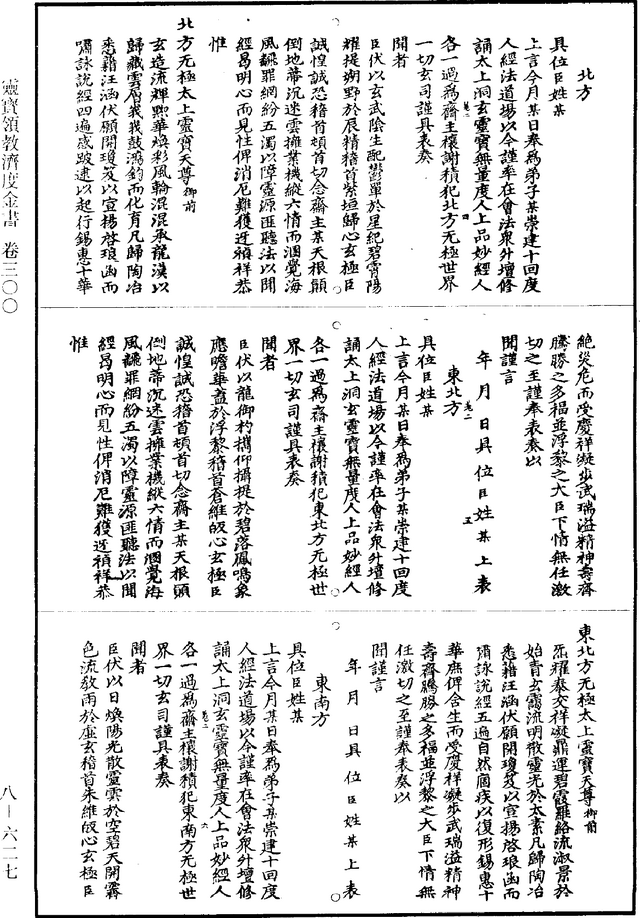 北方
具位臣姓某
上言今月某日奉為弟子某崇建十回度
人經法道場以今謹率在會法衆外壇修
誦太上洞玄靈寶無量度人上品妙經人
各一過為齋主禳謝積犯北方无極世界
一切玄司謹具表奏
聞者
臣伏以玄武陰生配鬱單於星紀碧霄陽
耀提朔野於辰精稽首紫垣歸心玄極臣
誠惶誠恐稽首頓首切念齋主某天根顛
倒地蒂沉迷雲擁業機縱六情而涸覺海
風飜罪網紛五濁以障靈源匪聽法以聞
經曷明心而見性俾消厄難獲迓禎祥恭
惟
北方无極太上靈寶天尊御前
玄造流輝熙華煥彩風輪混混承龍漢以
歸藏雲層峩峩鼓鴻鈞而化育凡歸陶冶
悉藉汪涵伏願開瓊笈以宣揚啓琅函而
嘯詠說經四遍感跛逮以起行錫惠十華
絕災危而受慶祥凝步武瑞溢精神壽齊
騰勝之多福並浮黎之大臣下情無任激
切之至謹奉表奏以
聞謹言
年 月 日具位臣姓某上表
東北方
具位臣姓某
上言今月某日奉為弟子某崇建十回度
人經法道場以今謹率在會法衆外壇修
誦太上洞玄靈寶無量度人上品妙經人
各一過為齋主禳謝積犯東北方无極世
界一切玄司謹具表奏
聞者
臣伏以龍御杓攜仰攝提於碧落鳳鳴象
應瞻華蓋於浮黎稽首蒼維皈心玄極臣
誠惶誠恐稽首頓首切念齋主某天根顛
倒地蒂沉迷雲擁業機縱六情而涸覺海
風飜罪網紛五濁以障靈源匪聽法以聞
經曷明心而見性俾消厄難獲迓禎祥恭
惟
東北方无極太上靈寶天尊御前
炁耀泰交祥凝鼎運碧霞羅絡流淑景於
始青玄靄流明散靈光於太素凡歸陶冶
悉藉汪涵伏願開瓊笈以宣揚啓琅函而
嘯詠說經五遍自然痼疾以復形錫惠十
華庶俾含生而受慶祥凝步武瑞溢精神
壽齊騰勝之多福並浮黎之大臣下情無
任激切之至謹奉表奏以
聞謹言
年 月 日具位臣姓某上表
東南方
具位臣姓某
上言今月某日奉為弟子某崇建十回度
人經法道場以今謹率在會法衆外壇修
誦太上洞玄靈寶無量度人上品妙經人
各一過為齋主禳謝積犯東南方无極世
界一切玄司謹具表奏
聞者
臣伏以日煥陽光散靈雲於空碧天開霽
色流敎雨於虛玄稽首朱維皈心玄極臣
靈寶領教濟度金書 卷三〇〇
八-六二七